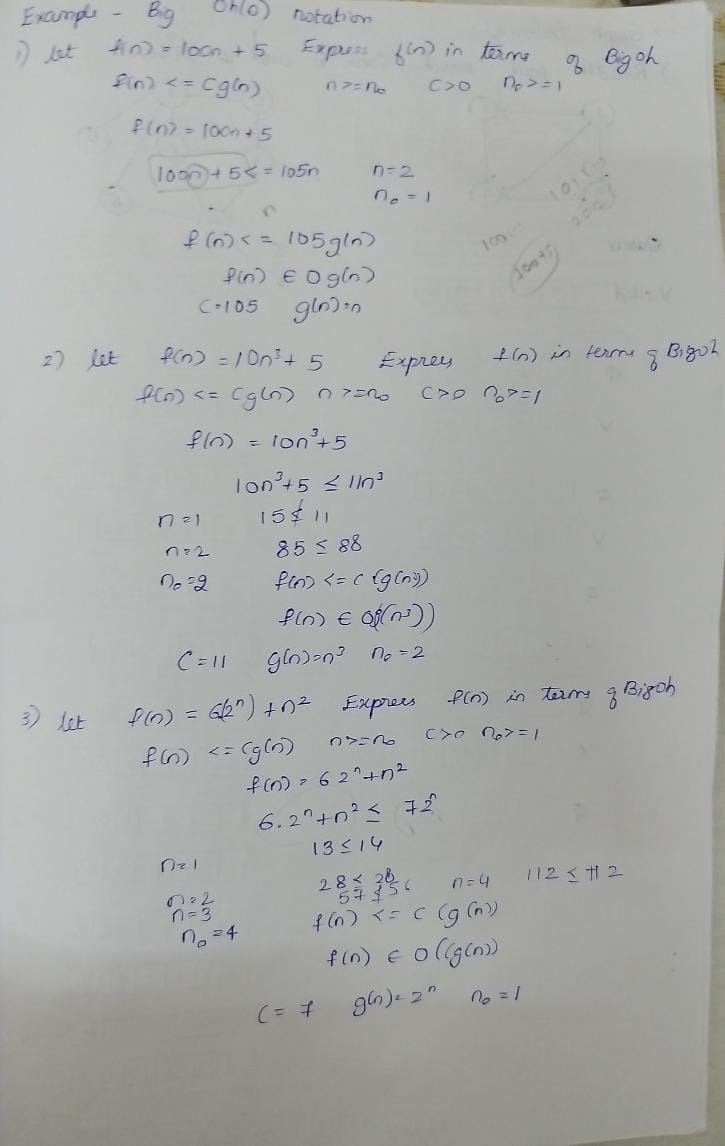 Example - Big Oh(O) notation
1) let f(n) = 100n + 5 Express f(n) in terms of Bigoh
f(n) <= cg(n) n>=n₀ c>0 n₀>=1
f(n) = 100n+5
100n + 5 <= 105n n=2
n₀ = 1
f(n) <= 105g(n)
f(n) ∈ O g(n)
C=105 g(n)=n
2) let f(n) = 10n³+ 5 Express f(n) in terms of Bigoh
f(n) <= cg(n) n>=n₀ c>0 n₀>=1
f(n) = 10n³+5
10n³+5 ≤ 11n³
n=1 15≰ 11
n=2 85 ≤ 88
n₀=2 f(n) <= c (g(n³))
f(n) ∈ Og(n³))
C=11 g(n)=n³ n₀=2
3) let f(n) = 6(2ⁿ)+n² Express f(n) in terms of Bigoh
f(n) <= cg(n) n>=n₀ c>0 n₀>=1
f(n) = 6 2ⁿ+n²
6.2ⁿ+n² ≤ 72ⁿ
n=1 13≤14
n=2 28≤ 28 n=4 112 ≤ 112
n=3 57≰56
n₀=4 f(n) <= c (g(n))
f(n) ∈ O((g(n))
C= 7 g(n)=2ⁿ n₀=1